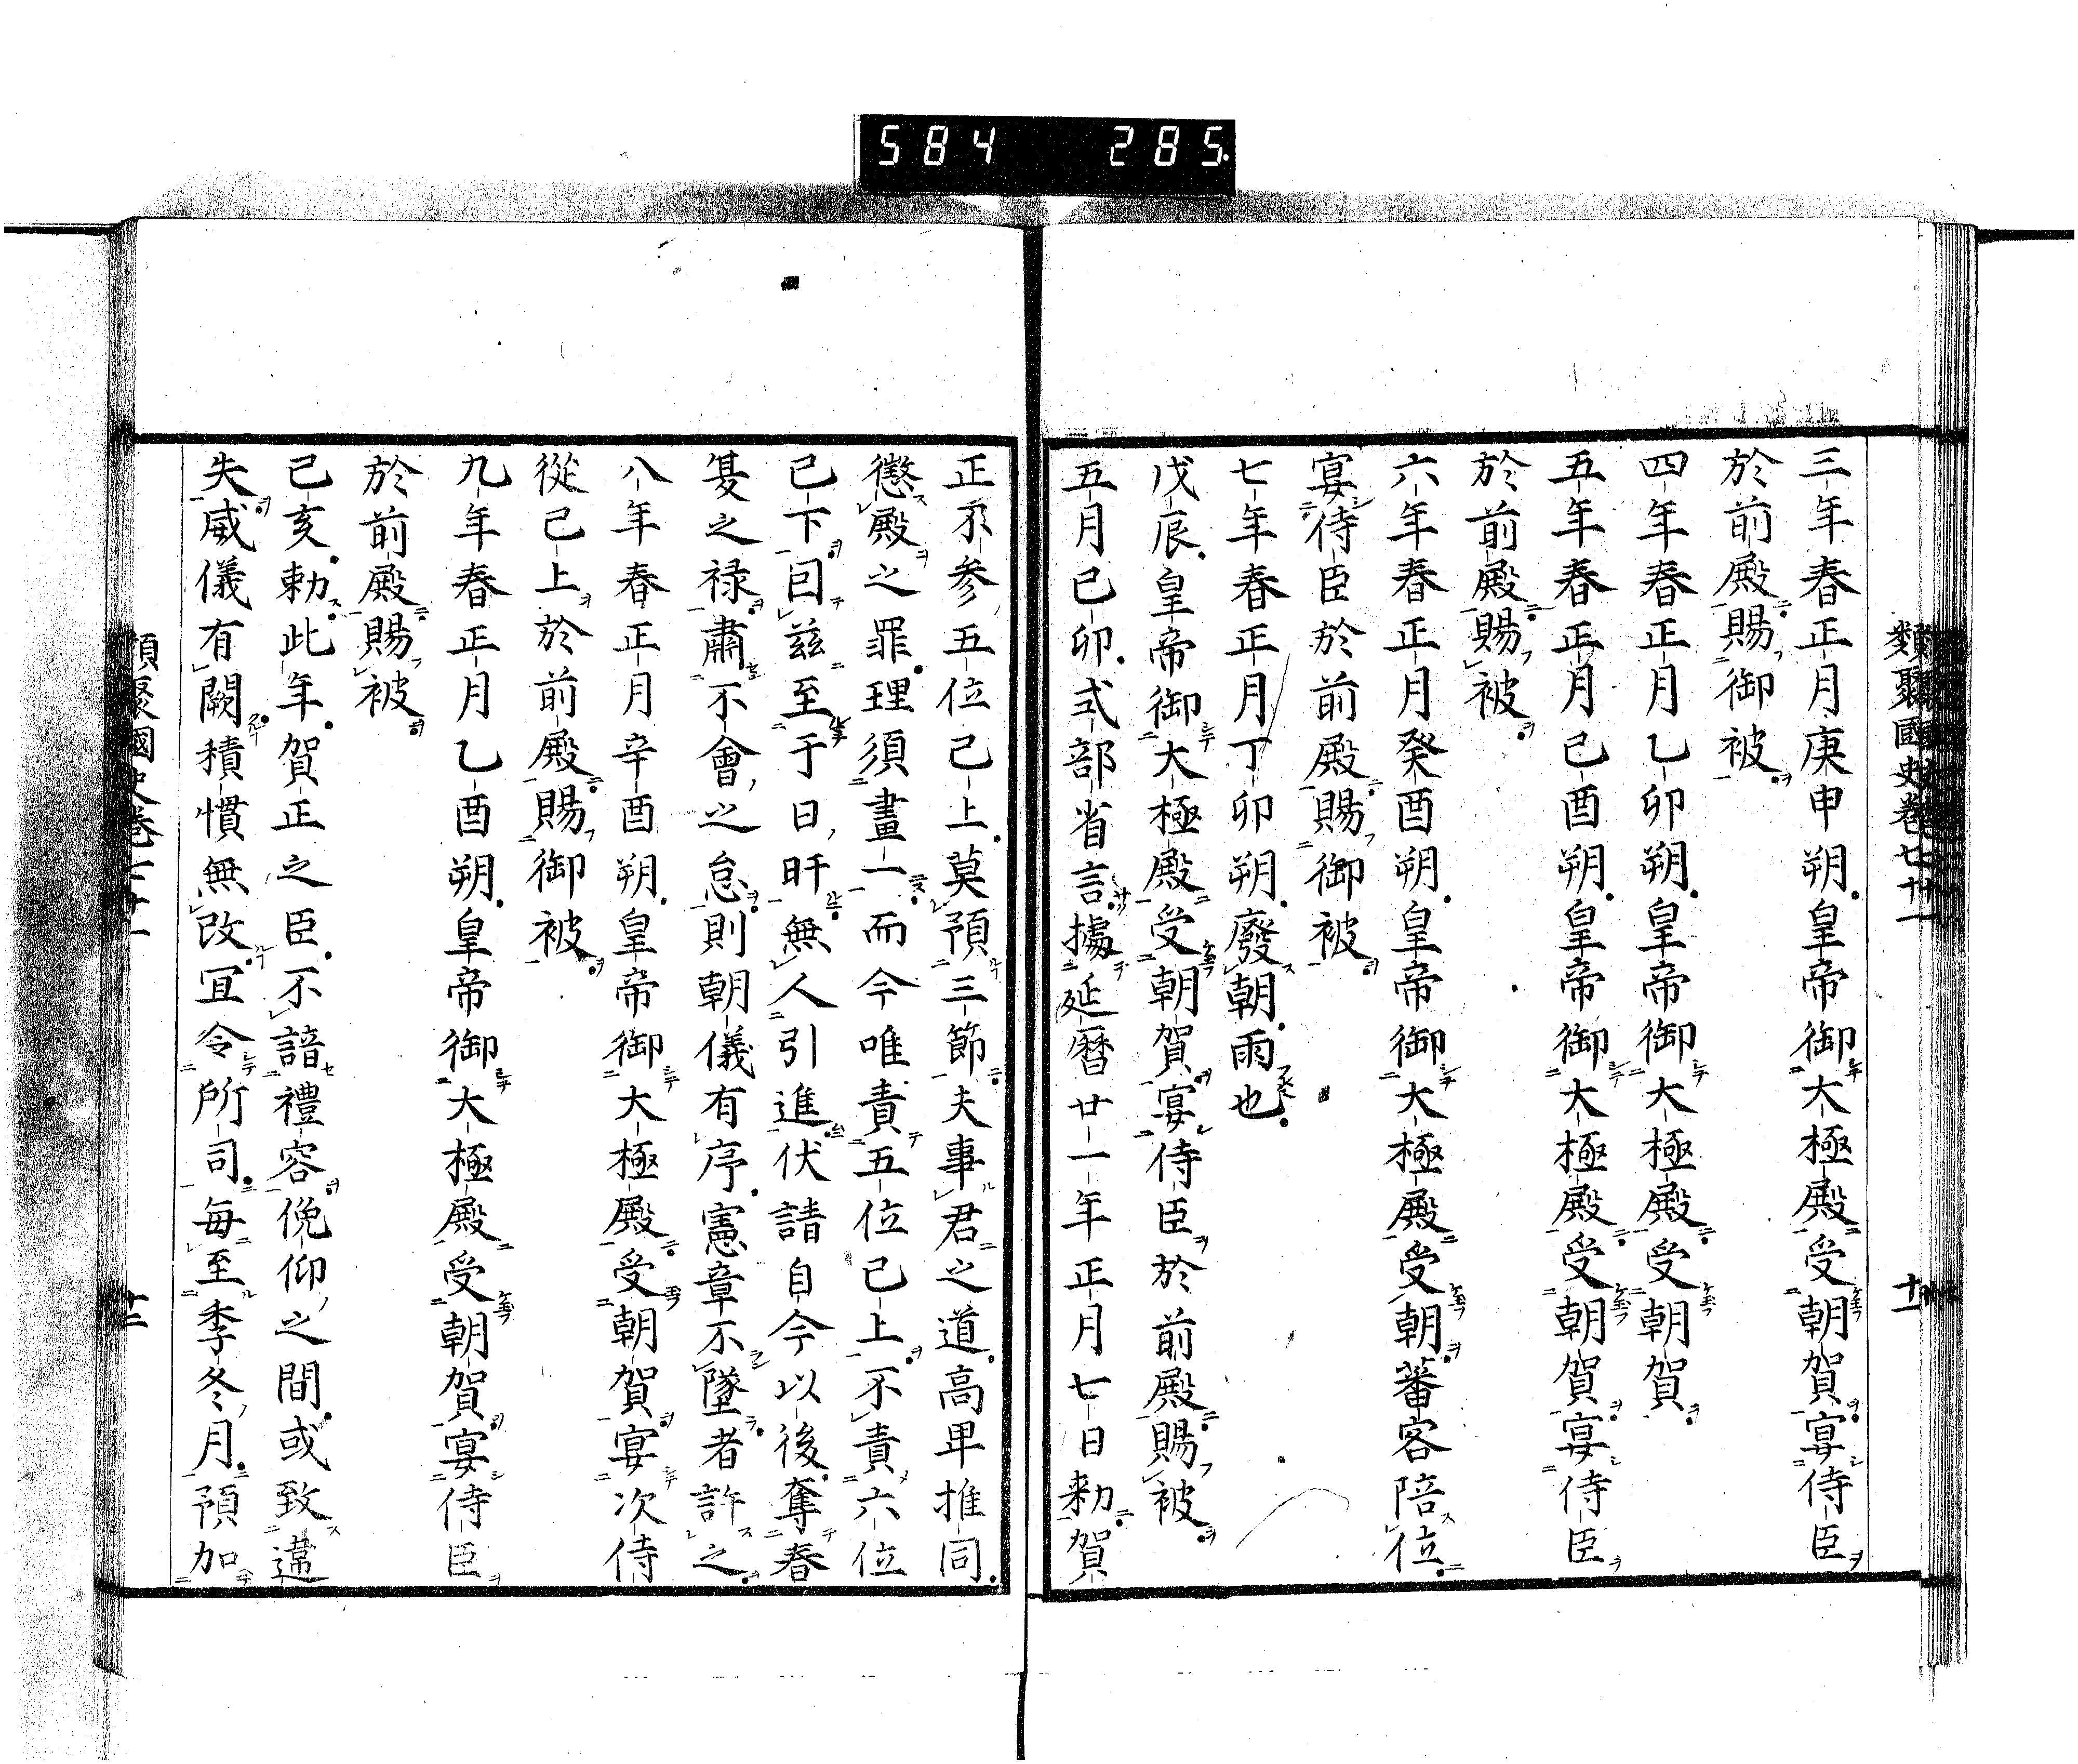 584 285
類聚國史卷七十一
十一
三年春正月庚申朔皇帝御大極殿受朝賀宴侍臣
於前殿賜御被
四年春正月乙卯朔皇帝御大極殿受朝賀
五年春正月己酉朔皇帝御大極殿受朝賀宴侍臣
於前殿賜被
六年春正月癸酉朔皇帝御大極殿受朝蕃客陪位
宴侍臣於前殿賜御被
七年春正月丁卯朔廢朝雨也
戊辰皇帝御大極殿受朝賀宴侍臣於前殿賜被
五月己卯式部省言據延曆廿一年正月七日勅賀
正不參五位已上莫預三節夫事君之道高卑推同
懲殿之罪理須畫一而今唯責五位已上不責六位
已下因茲至于日旰無人引進伏請自今以後奪春
夏之祿肅不會之怠則朝儀有序憲章不墜者許之
八年春正月辛酉朔皇帝御大極殿受朝賀宴次侍
從已上於前殿賜御被
九年春正月乙酉朔皇帝御大極殿受朝賀宴侍臣
於前殿賜被
己亥勅此年賀正之臣不諳禮容俛仰之間或致違
失威儀有闕積慣無改宜令所司每至季冬月預加
類聚國史卷七十一
十二